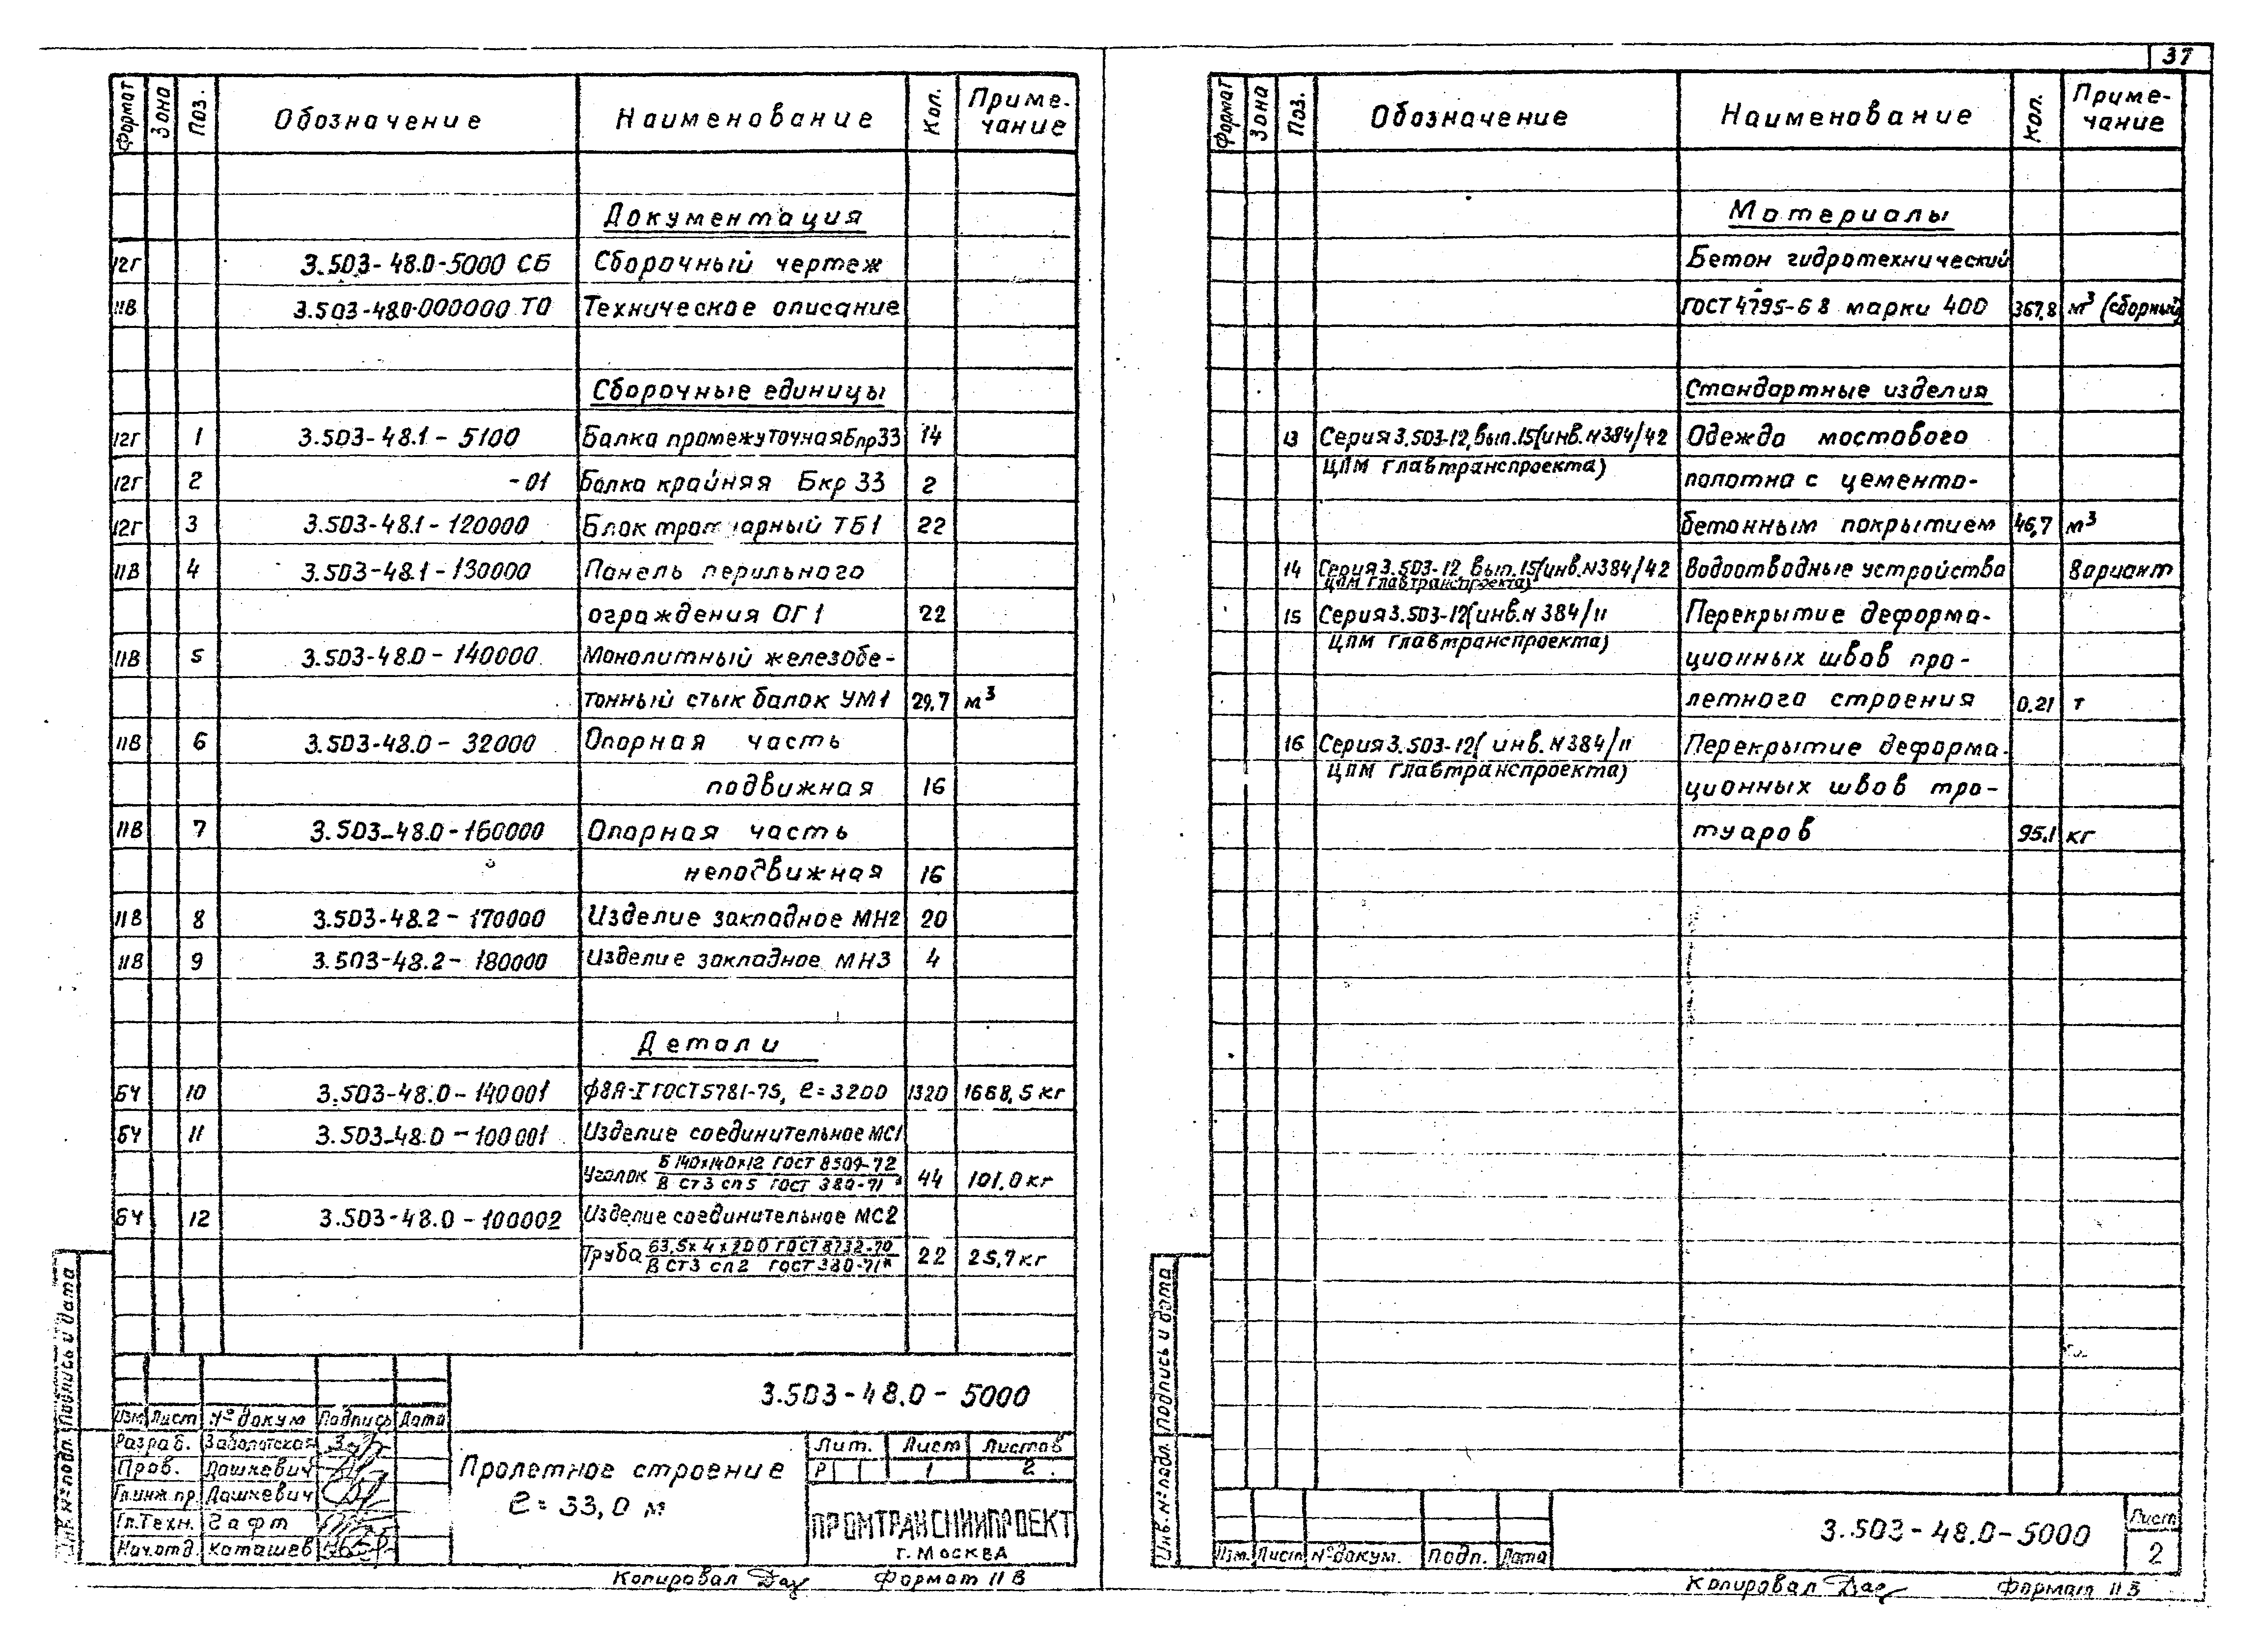 37
Формат Зона Поз. Обозначение Наименование Кол. Приме-чание
Документация
12Г 3.503-48.0-5000 СБ Сборочный чертеж
11В 3.503-48.0-000000 ТО Техническое описание
Сборочные единицы
12Г 1 3.503-48.1-5100 Балка промежуточная Бпр33 14
12Г 2 -01 Балка крайняя Бкр 33 2
12Г 3 3.503-48.1-120000 Блок тротуарный ТБ1 22
11В 4 3.503-48.1-130000 Панель перильного
ограждения ОГ1 22
11В 5 3.503-48.0-140000 Монолитный железобе-
тонный стык балок УМ1 29,7 м³
11В 6 3.503-48.0-32000 Опорная часть
подвижная 16
11В 7 3.503-48.0-160000 Опорная часть
неподвижная 16
11В 8 3.503-48.2-170000 Изделие закладное МН2 20
11В 9 3.503-48.2-180000 Изделие закладное МН3 4
Детали
БЧ 10 3.503-48.0-140001 ф8А-I ГОСТ 5781-75, ℓ=3200 1320 1668,5 кг
БЧ 11 3.503-48.0-100001 Изделие соединительное МС1
Уголок Б 140х140х12 ГОСТ 8509-72
В Ст3 сп5 ГОСТ 380-71 44 101,0 кг
БЧ 12 3.503-48.0-100002 Изделие соединительное МС2
Труба 63,5х4х200 ГОСТ 8732-70
В Ст3 сп2 ГОСТ 380-71* 22 25,7 кг
3.503-48.0-5000
Изм. Лист № докум Подпись Дата
Разраб. Заболотская
Пров. Дашкевич
Гл.инж.пр. Дашкевич
Гл.Техн. Гафт
Нач.отд. Каташев
Пролетное строение
ℓ=33,0 м
Лит. Лист Листов
Р 1 2
ПРОМТРАНСНИИПРОЕКТ
г. Москва
Инв. № подл. Подпись и дата
Копировал Формат 11В
Формат Зона Поз. Обозначение Наименование Кол. Приме-чание
Материалы
Бетон гидротехнический
ГОСТ 4795-68 марки 400 367,8 м³ (сборный)
Стандартные изделия
13 Серия 3.503-12, вып.15 (инв.N384/42 Одежда мостового
ЦПМ Главтранспроекта) полотна с цементо-
бетонным покрытием 46,7 м³
14 Серия 3.503-12 вып.15 (инв.N384/42 Водоотводные устройства Вариант
ЦПМ Главтранспроекта)
15 Серия 3.503-12 (инв.N 384/11 Перекрытие деформа-
ЦПМ Главтранспроекта) ционных швов про-
летного строения 0.21 т
16 Серия 3.503-12 (инв.N384/11 Перекрытие деформа-
ЦПМ Главтранспроекта) ционных швов тро-
туаров 95.1 кг
3.503-48.0-5000
Лист
2
Изм. Лист № докум. Подп. Дата
Инв. № подл. Подпись и дата
Копировал Формат 11В